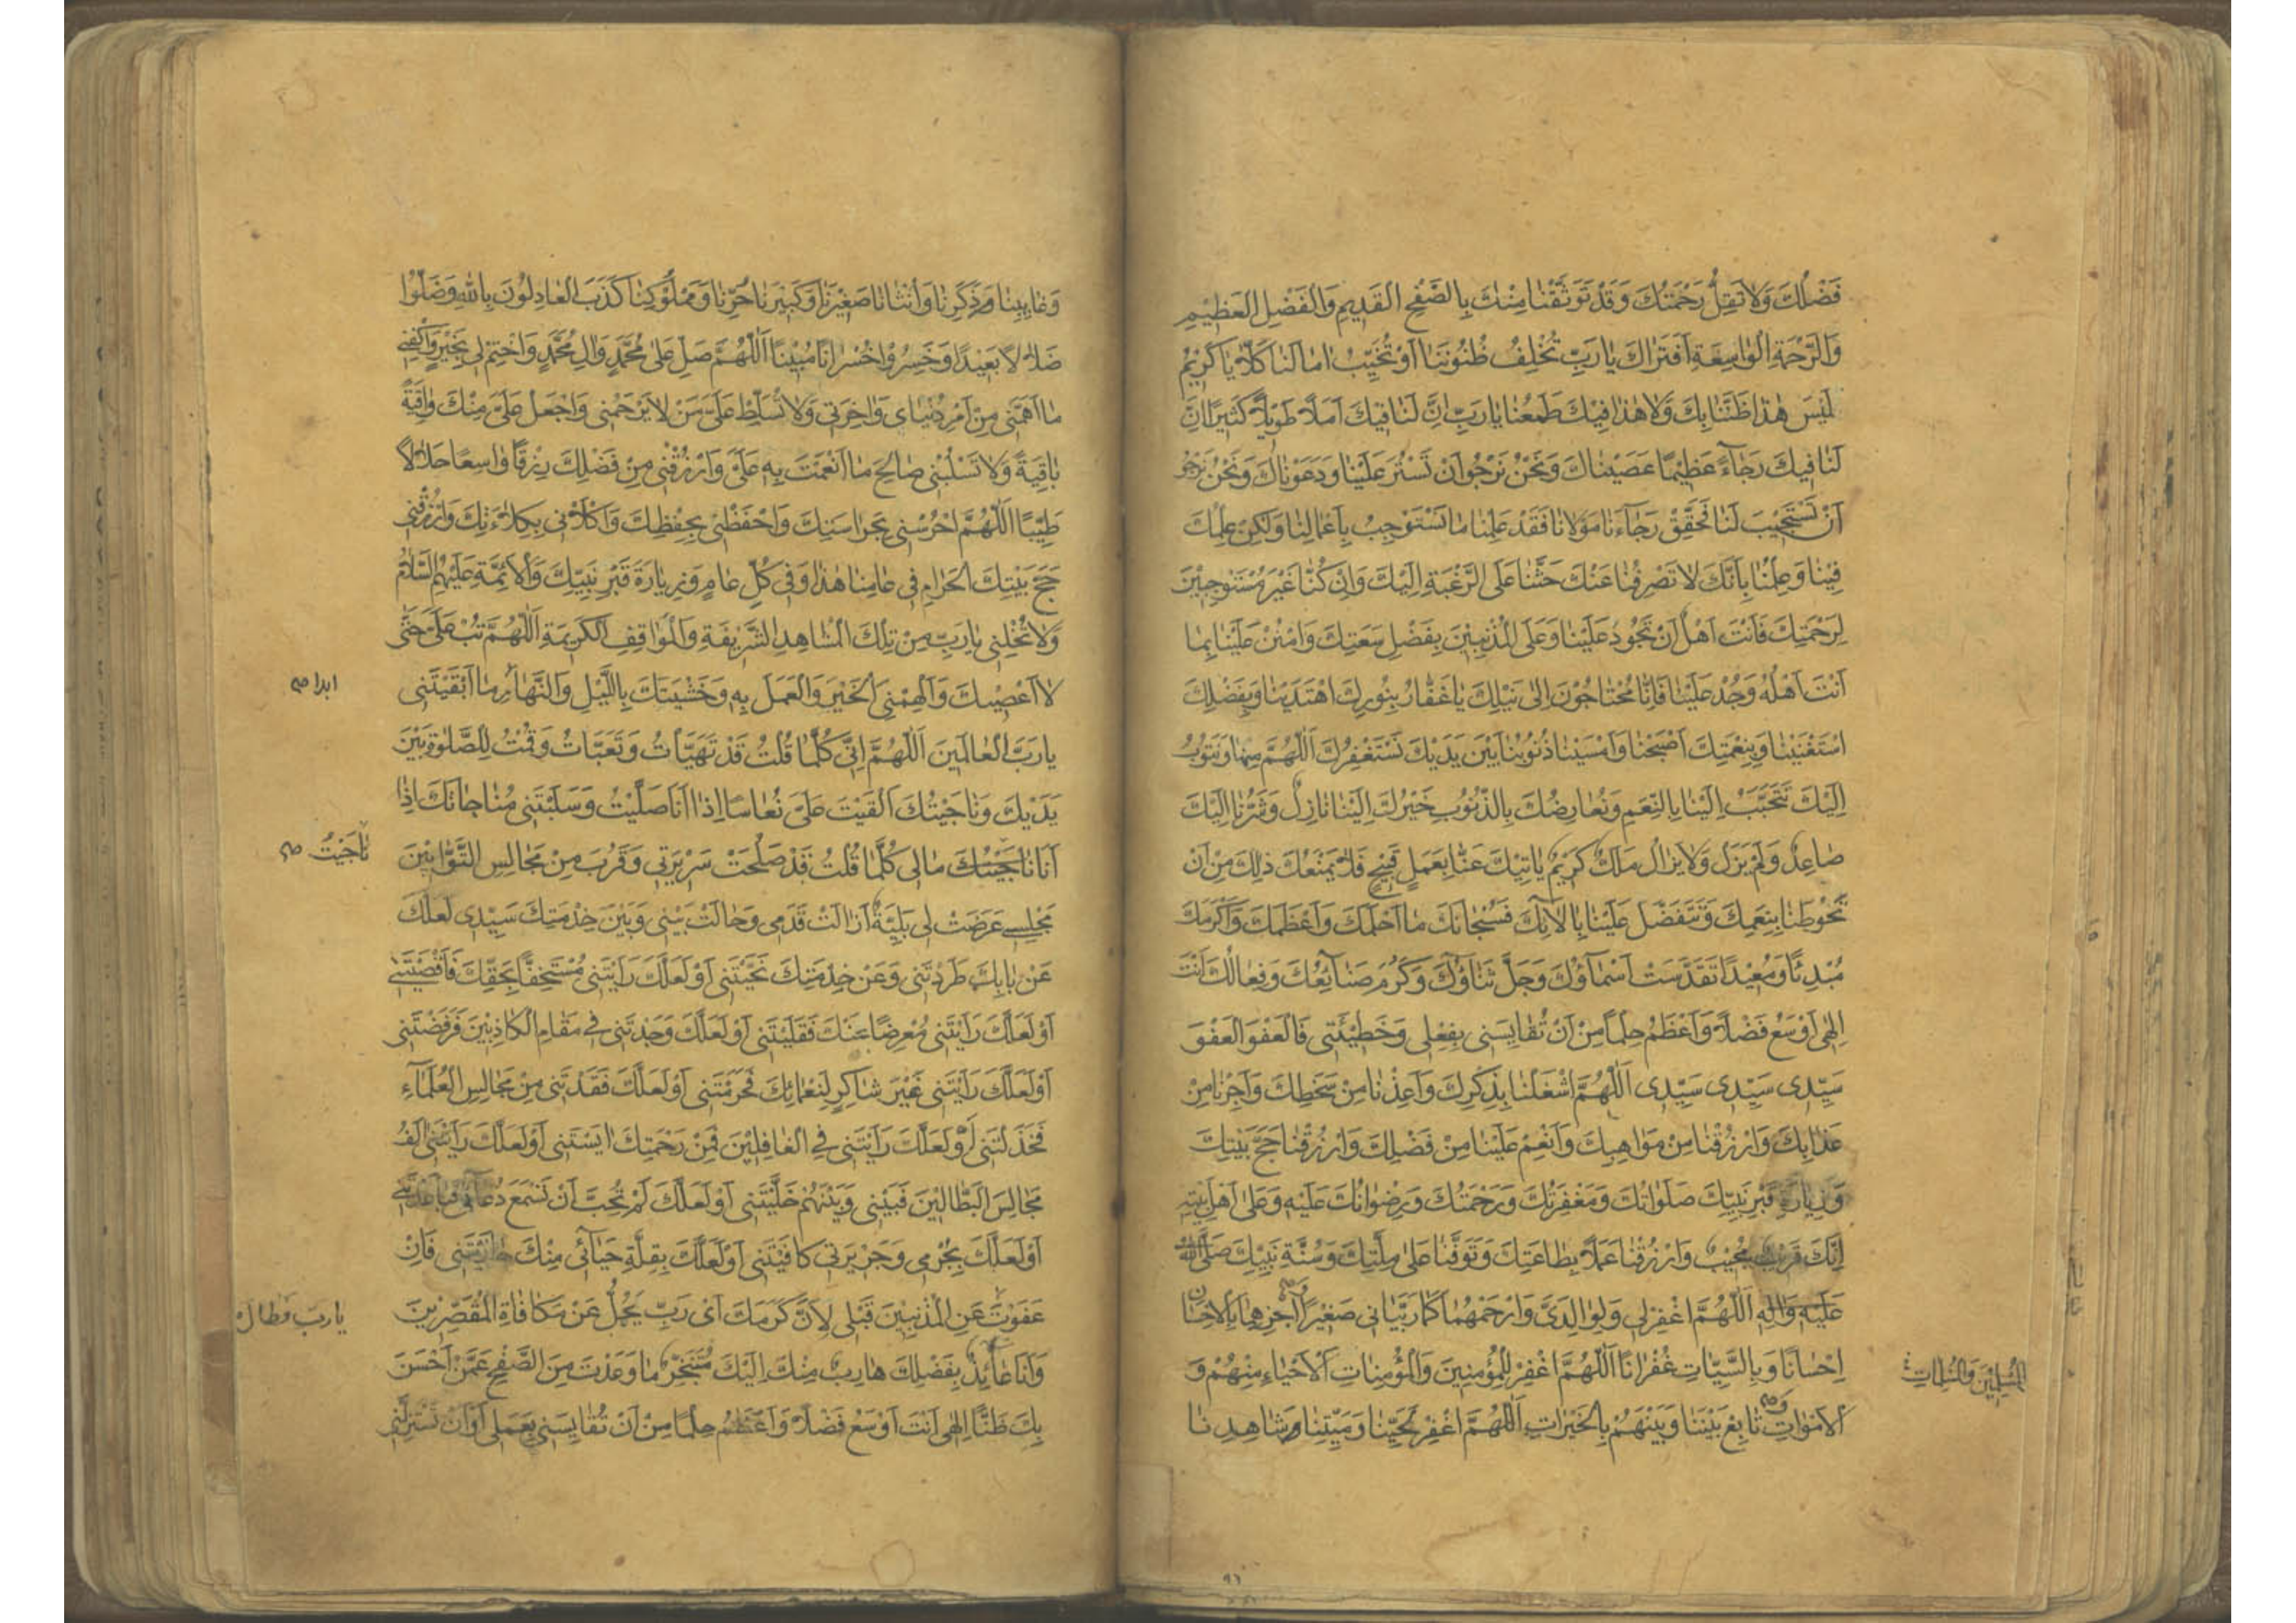 فَضْلُكَ وَلَا تَقِلُّ رَحْمَتُكَ وَقَدْ تَوَثَّقْنَا مِنْكَ بِالصَّفْحِ الْقَدِيمِ وَالْفَضْلِ الْعَظِيمِ
وَالرَّحْمَةِ الْوَاسِعَةِ أَفَتَرَاكَ يَا رَبِّ تُخْلِفُ ظُنُونَنَا أَوْ تُخَيِّبُ آمَالَنَا كَلَّا يَا كَرِيمُ
لَيْسَ هٰذَا ظَنَّنَا بِكَ وَلَا هٰذَا فِيكَ طَمَعُنَا يَا رَبِّ إِنَّ لَنَا فِيكَ أَمَلًا طَوِيلًا كَثِيرًا إِنَّ
لَنَا فِيكَ رَجَاءً عَظِيمًا عَصَيْنَاكَ وَنَحْنُ نَرْجُو أَنْ تَسْتُرَ عَلَيْنَا وَدَعَوْنَاكَ وَنَحْنُ نَرْجُو
أَنْ تَسْتَجِيبَ لَنَا فَحَقِّقْ رَجَاءَنَا مَوْلَانَا فَقَدْ عَلِمْنَا مَا نَسْتَوْجِبُ بِأَعْمَالِنَا وَلٰكِنْ عِلْمُكَ
فِينَا وَعِلْمُنَا بِأَنَّكَ لَا تَصْرِفُنَا عَنْكَ حَثَّنَا عَلَى الرَّغْبَةِ إِلَيْكَ وَإِنْ كُنَّا غَيْرَ مُسْتَوْجِبِينَ
لِرَحْمَتِكَ فَأَنْتَ أَهْلٌ أَنْ تَجُودَ عَلَيْنَا وَعَلَى الْمُذْنِبِينَ بِفَضْلِ سَعَتِكَ وَامْنُنْ عَلَيْنَا بِمَا
أَنْتَ أَهْلُهُ وَجُدْ عَلَيْنَا فَإِنَّا مُحْتَاجُونَ إِلَى نَيْلِكَ يَا غَفَّارُ بِنُورِكَ اهْتَدَيْنَا وَبِفَضْلِكَ
اسْتَغْنَيْنَا وَبِنِعْمَتِكَ أَصْبَحْنَا وَأَمْسَيْنَا ذُنُوبُنَا بَيْنَ يَدَيْكَ نَسْتَغْفِرُكَ اَللّٰهُمَّ مِنْهَا وَنَتُوبُ
إِلَيْكَ تَتَحَبَّبُ إِلَيْنَا بِالنِّعَمِ وَنُعَارِضُكَ بِالذُّنُوبِ خَيْرُكَ إِلَيْنَا نَازِلٌ وَشَرُّنَا إِلَيْكَ
صَاعِدٌ وَلَمْ يَزَلْ وَلَا يَزَالُ مَلَكٌ كَرِيمٌ يَأْتِيكَ عَنَّا بِعَمَلٍ قَبِيحٍ فَلَا يَمْنَعُكَ ذٰلِكَ مِنْ أَنْ
تَحُوطَنَا بِنِعَمِكَ وَتَتَفَضَّلَ عَلَيْنَا بِآلَائِكَ فَسُبْحَانَكَ مَا أَحْلَمَكَ وَأَعْظَمَكَ وَأَكْرَمَكَ
مُبْدِئًا وَمُعِيدًا تَقَدَّسَتْ أَسْمَاؤُكَ وَجَلَّ ثَنَاؤُكَ وَكَرُمَ صَنَائِعُكَ وَفِعَالُكَ أَنْتَ
إِلٰهِي أَوْسَعُ فَضْلًا وَأَعْظَمُ حِلْمًا مِنْ أَنْ تُقَايِسَنِي بِفِعْلِي وَخَطِيئَتِي فَالْعَفْوَ الْعَفْوَ
سَيِّدِي سَيِّدِي سَيِّدِي اَللّٰهُمَّ اشْغَلْنَا بِذِكْرِكَ وَأَعِذْنَا مِنْ سَخَطِكَ وَأَجِرْنَا مِنْ
عَذَابِكَ وَارْزُقْنَا مِنْ مَوَاهِبِكَ وَأَنْعِمْ عَلَيْنَا مِنْ فَضْلِكَ وَارْزُقْنَا حَجَّ بَيْتِكَ
وَزِيَارَةَ قَبْرِ نَبِيِّكَ صَلَوَاتُكَ وَمَغْفِرَتُكَ وَرَحْمَتُكَ وَرِضْوَانُكَ عَلَيْهِ وَعَلَى أَهْلِ بَيْتِهِ
إِنَّكَ قَرِيبٌ مُجِيبٌ وَارْزُقْنَا عَمَلًا بِطَاعَتِكَ وَتَوَفَّنَا عَلَى مِلَّتِكَ وَسُنَّةِ نَبِيِّكَ صَلَّى اللّٰهُ
عَلَيْهِ وَآلِهِ اَللّٰهُمَّ اغْفِرْ لِي وَلِوَالِدَيَّ وَارْحَمْهُمَا كَمَا رَبَّيَانِي صَغِيرًا وَاجْزِهِمَا بِالْإِحْسَانِ
إِحْسَانًا وَبِالسَّيِّئَاتِ غُفْرَانًا اَللّٰهُمَّ اغْفِرْ لِلْمُؤْمِنِينَ وَالْمُؤْمِنَاتِ الْأَحْيَاءِ مِنْهُمْ وَ
المُسْلِمِينَ وَالمُسْلِمَاتِ
الْأَمْوَاتِ وَتَابِعْ بَيْنَنَا وَبَيْنَهُمْ بِالْخَيْرَاتِ اَللّٰهُمَّ اغْفِرْ لِحَيِّنَا وَمَيِّتِنَا وَشَاهِدِنَا
٩٦
وَغَايِبِنَا وَذَكَرِنَا وَأُنْثَانَا صَغِيرِنَا وَكَبِيرِنَا حُرِّنَا وَمَمْلُوكِنَا كَذَبَ الْعَادِلُونَ بِاللّٰهِ وَضَلُّوا
ضَلَالًا بَعِيدًا وَخَسِرُوا خُسْرَانًا مُبِينًا اَللّٰهُمَّ صَلِّ عَلَى مُحَمَّدٍ وَآلِ مُحَمَّدٍ وَاخْتِمْ لِي بِخَيْرٍ وَاكْفِنِي
مَا أَهَمَّنِي مِنْ أَمْرِ دُنْيَايَ وَآخِرَتِي وَلَا تُسَلِّطْ عَلَيَّ مَنْ لَا يَرْحَمُنِي وَاجْعَلْ عَلَيَّ مِنْكَ وَاقِيَةً
بَاقِيَةً وَلَا تَسْلُبْنِي صَالِحَ مَا أَنْعَمْتَ بِهِ عَلَيَّ وَارْزُقْنِي مِنْ فَضْلِكَ رِزْقًا وَاسِعًا حَلَالًا
طَيِّبًا اَللّٰهُمَّ احْرُسْنِي بِحَرَاسَتِكَ وَاحْفَظْنِي بِحِفْظِكَ وَاكْلَأْنِي بِكِلَاءَتِكَ وَارْزُقْنِي
حَجَّ بَيْتِكَ الْحَرَامِ فِي عَامِنَا هٰذَا وَفِي كُلِّ عَامٍ وَزِيَارَةَ قَبْرِ نَبِيِّكَ وَالْأَئِمَّةِ عَلَيْهِمُ السَّلَامُ
وَلَا تُخْلِنِي يَا رَبِّ مِنْ تِلْكَ الْمَشَاهِدِ الشَّرِيفَةِ وَالْمَوَاقِفِ الْكَرِيمَةِ اَللّٰهُمَّ تُبْ عَلَيَّ حَتَّى
لَا أَعْصِيَكَ وَأَلْهِمْنِي الْخَيْرَ وَالْعَمَلَ بِهِ وَخَشْيَتَكَ بِاللَّيْلِ وَالنَّهَارِ مَا أَبْقَيْتَنِي
ابدا صح
يَا رَبَّ الْعَالَمِينَ اَللّٰهُمَّ إِنِّي كُلَّمَا قُلْتُ قَدْ تَهَيَّأْتُ وَتَعَبَّأْتُ وَقُمْتُ لِلصَّلٰوةِ بَيْنَ
يَدَيْكَ وَنَاجَيْتُكَ أَلْقَيْتَ عَلَيَّ نُعَاسًا إِذَا أَنَا صَلَّيْتُ وَسَلَبْتَنِي مُنَاجَاتَكَ إِذَا
أَنَا نَاجَيْتُكَ مَالِي كُلَّمَا قُلْتُ قَدْ صَلَحَتْ سَرِيرَتِي وَقَرُبَ مِنْ مَجَالِسِ التَّوَّابِينَ
نَاجَيْتُ صح
مَجْلِسِي عَرَضَتْ لِي بَلِيَّةٌ أَزَالَتْ قَدَمِي وَحَالَتْ بَيْنِي وَبَيْنَ خِدْمَتِكَ سَيِّدِي لَعَلَّكَ
عَنْ بَابِكَ طَرَدْتَنِي وَعَنْ خِدْمَتِكَ نَحَّيْتَنِي أَوْ لَعَلَّكَ رَأَيْتَنِي مُسْتَخِفًّا بِحَقِّكَ فَأَقْصَيْتَنِي
أَوْ لَعَلَّكَ رَأَيْتَنِي مُعْرِضًا عَنْكَ فَقَلَيْتَنِي أَوْ لَعَلَّكَ وَجَدْتَنِي فِي مَقَامِ الْكَاذِبِينَ فَرَفَضْتَنِي
أَوْ لَعَلَّكَ رَأَيْتَنِي غَيْرَ شَاكِرٍ لِنَعْمَائِكَ فَحَرَمْتَنِي أَوْ لَعَلَّكَ فَقَدْتَنِي مِنْ مَجَالِسِ الْعُلَمَاءِ
فَخَذَلْتَنِي أَوْ لَعَلَّكَ رَأَيْتَنِي فِي الْغَافِلِينَ فَمِنْ رَحْمَتِكَ آيَسْتَنِي أَوْ لَعَلَّكَ رَأَيْتَنِي آلَفُ
مَجَالِسَ الْبَطَّالِينَ فَبَيْنِي وَبَيْنَهُمْ خَلَّيْتَنِي أَوْ لَعَلَّكَ لَمْ تُحِبَّ أَنْ تَسْمَعَ دُعَائِي فَبَاعَدْتَنِي
أَوْ لَعَلَّكَ بِجُرْمِي وَجَرِيرَتِي كَافَيْتَنِي أَوْ لَعَلَّكَ بِقِلَّةِ حَيَائِي مِنْكَ جَازَيْتَنِي فَإِنْ
عَفَوْتَ عَنِ الْمُذْنِبِينَ قَبْلِي لِأَنَّ كَرَمَكَ أَيْ رَبِّ يَجِلُّ عَنْ مَكَافَاةِ الْمُقَصِّرِينَ
يا ربّ فطال
وَأَنَا عَائِذٌ بِفَضْلِكَ هَارِبٌ مِنْكَ إِلَيْكَ مُتَنَجِّزٌ مَا وَعَدْتَ مِنَ الصَّفْحِ عَمَّنْ أَحْسَنَ
بِكَ ظَنًّا إِلٰهِي أَنْتَ أَوْسَعُ فَضْلًا وَأَعْظَمُ حِلْمًا مِنْ أَنْ تُقَايِسَنِي بِعَمَلِي أَوْ أَنْ تَسْتَزِلَّنِي